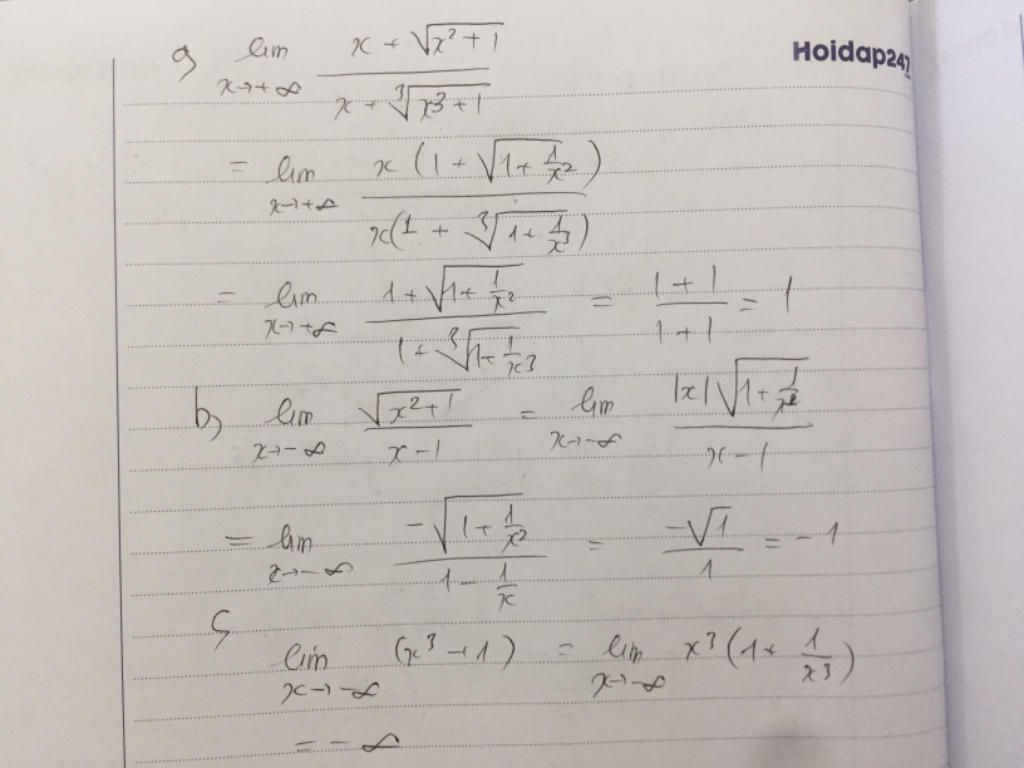 Hoidap247
a, lim x→+∞ (x + √(x² + 1)) / (x + ∛(x³ + 1))
= lim x→+∞ x(1 + √(1 + 1/x²)) / x(1 + ∛(1 + 1/x³))
= lim x→+∞ (1 + √(1 + 1/x²)) / (1 + ∛(1 + 1/x³)) = (1 + 1)/(1 + 1) = 1
b, lim x→-∞ √(x² + 1) / (x - 1) = lim x→-∞ |x|√(1 + 1/x²) / (x - 1)
= lim x→-∞ -√(1 + 1/x²) / (1 - 1/x) = -√1 / 1 = -1
c,
lim x→-∞ (x³ + 1) = lim x→-∞ x³(1 + 1/x³)
= -∞